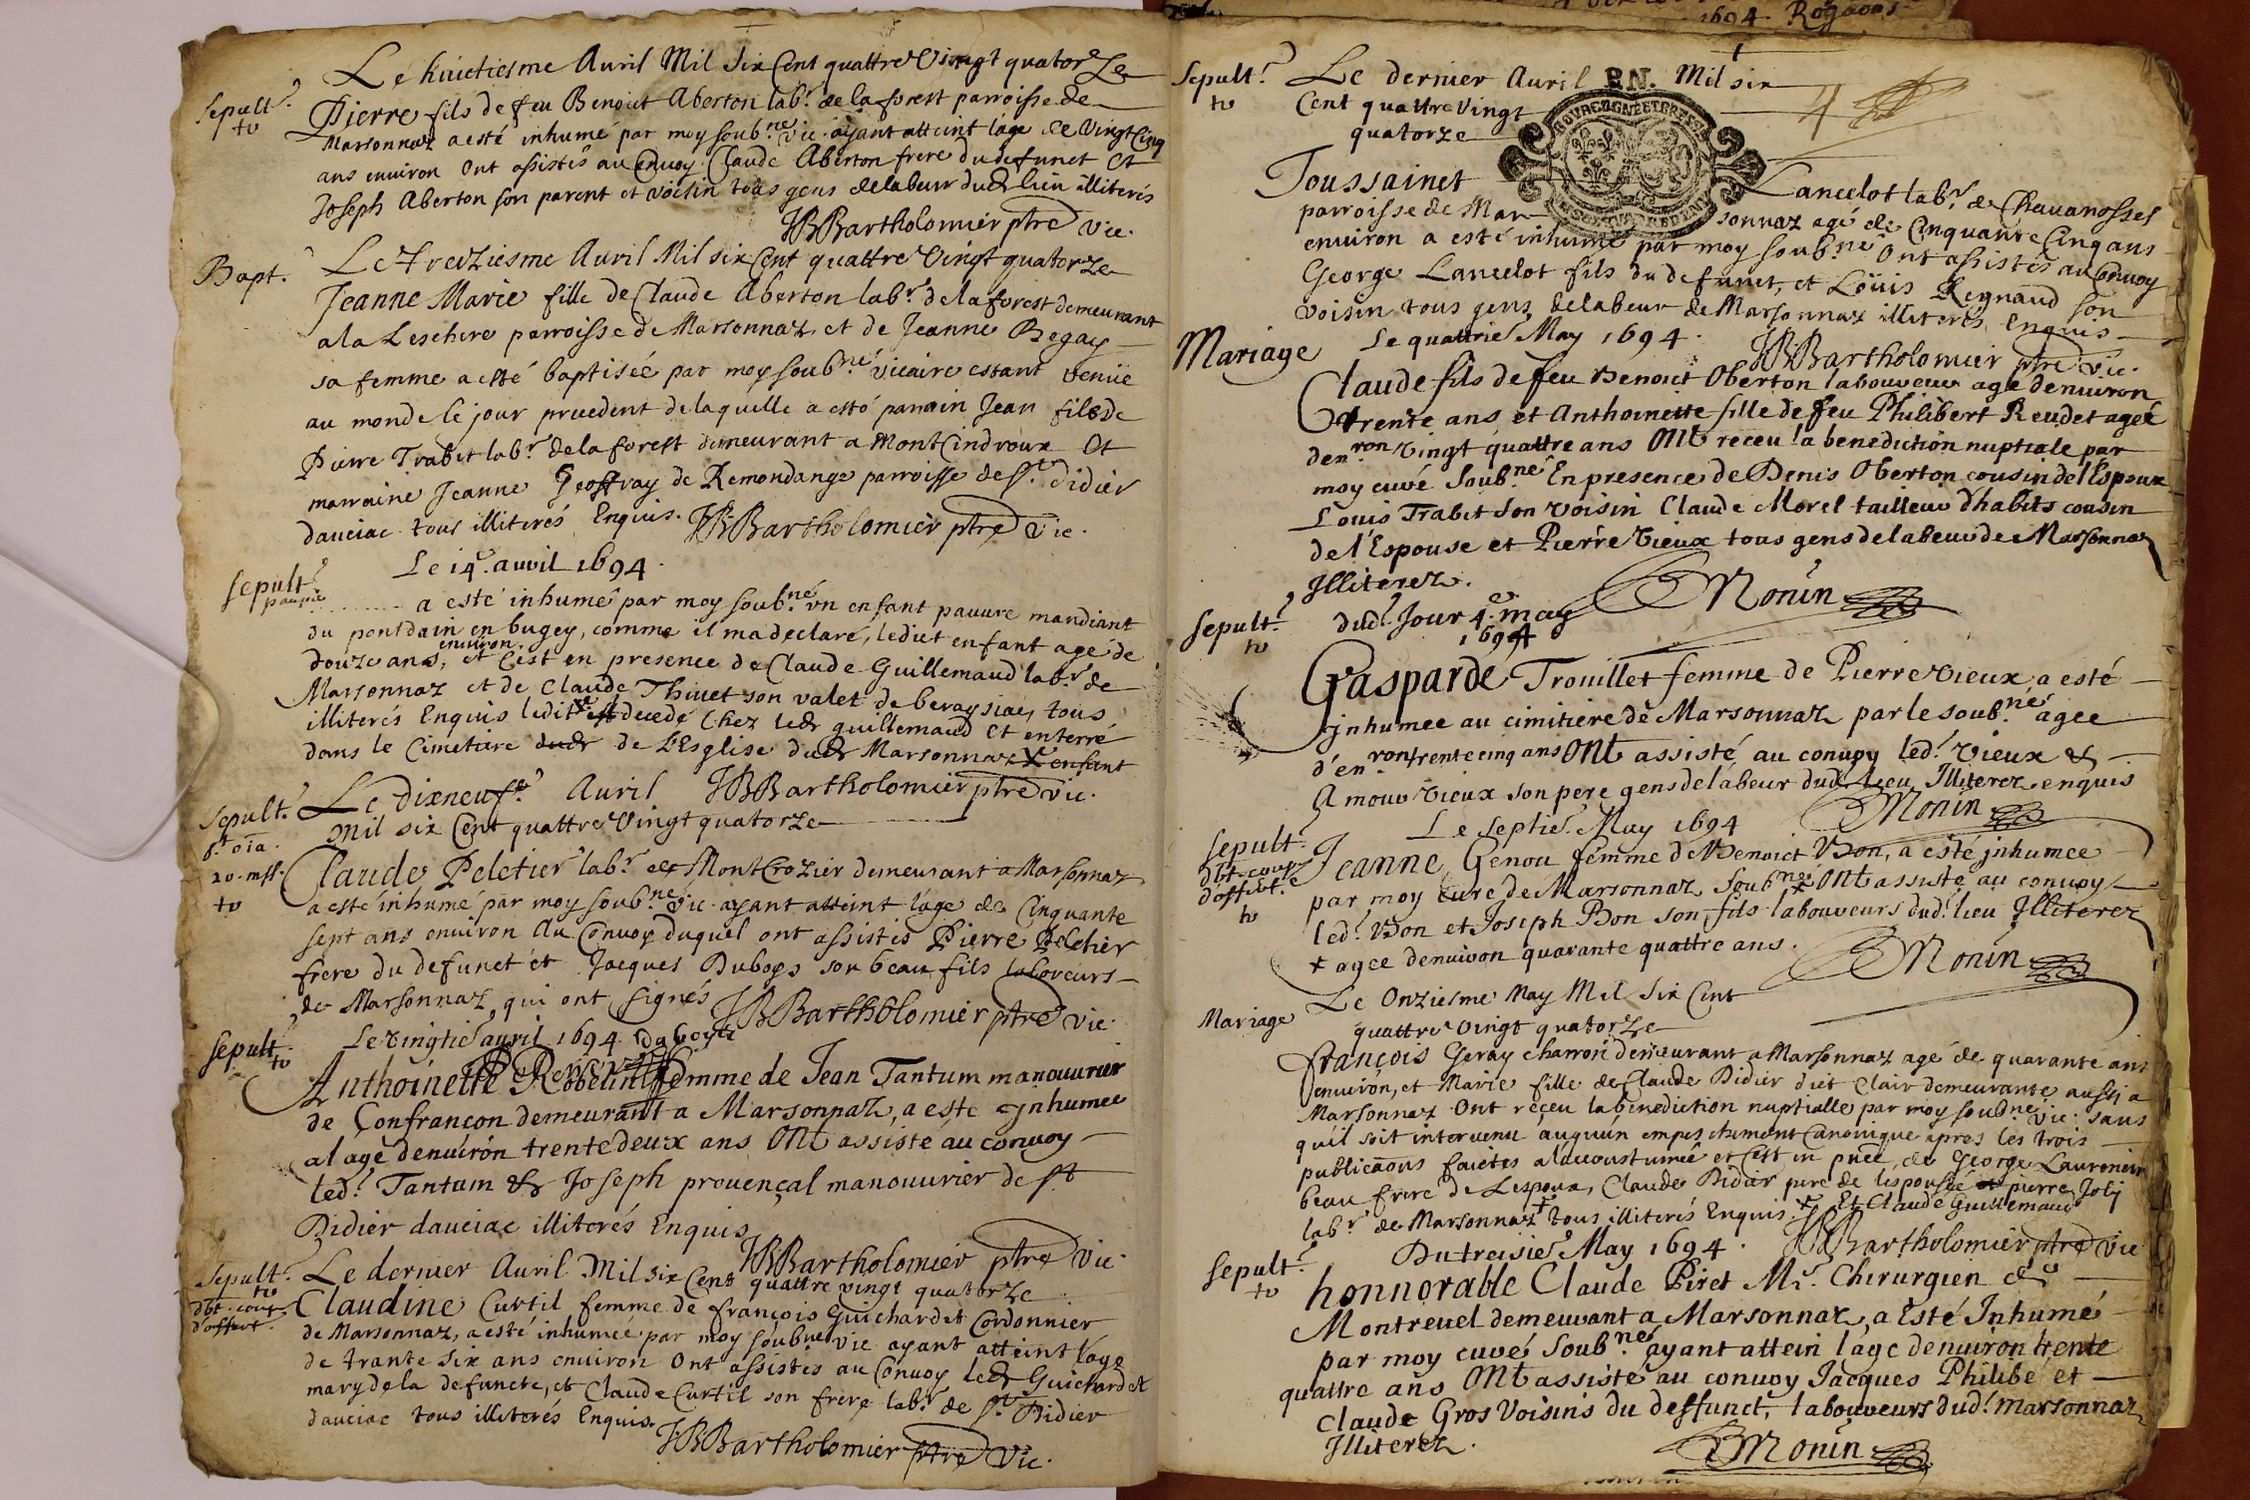 Le huictiesme Avril Mil six Cent quattre Vingt quatorze
Sepult.
tv
Pierre fils de feu Benoict Aberton lab.r de la forest parroisse de
Marsonnaz a esté inhumé par moy soub.né vic. ayant atteint lage de Vingt Cinq
ans environ Ont assistés au Convoy Claude Aberton frere du defunct Et
Joseph Aberton son parent et voisin tous gens de labeur dud lieu illiterés
JBBartholomier ptre vic.
Bapt.
Le treiziesme Avril Mil six Cent quattre Vingt quatorze
Jeanne Marie fille de Claude Aberton lab.r de la forest demeurant
a la Leschere parroisse de Marsonnaz et de Jeanne Begay
sa femme a esté baptisée par moy soub.né vicaire estant venüe
au monde le jour precedent de laquelle a esté parrain Jean fils de
Pierre Trabet lab.r de la forest demeurant a MontCindroux Et
marraine Jeanne Geoffray de Remondange parroisse de St. Didier
dauciac tous illiterés Enquis. JBBartholomier ptre vic.
Le 14. avril 1694.
Sepult.
pauvre
a esté inhumé par moy soub.né vn enfant pauvre mandiant
du pontdain en bugey, comme il ma declaré, ledict enfant agé de
douze ans, environ et Cest en presence de Claude Guillemaud lab.r de
Marsonnaz et de Claude Thivet son valet de beraysiac, tous
illiterés Enquis ledit x est decedé Chez led guillemaud Et enterré
dans le Cimetiere dud de L'Esglise dud Marsonnaz x enfant
Sepult.
Le dixneuf.e Avril JBBartholomier ptre vic.
Mil six Cent quattre Vingt quatorze
20. mss.
tv
Claude Peletier lab.r de MontCrozier demeurant a Marsonnaz
a esté inhumé par moy soub.né vic. ayant atteint lage de Cinquante
sept ans environ Au Convoy duquel ont assistés Pierre Peletier
frere du defunct et Jacques Duboys son beau fils laboreurs
de Marsonnaz qui ont signés JBBartholomier ptre vic.
Sepult.
tv
Le vingtie.' avril 1694 Duboys
Anthoinette Robelin femme de Jean Tantum manouvrier
de Confrançon demeurant a Marsonnaz, a esté Jnhumee
al agé denuirón trente deux ans Ont assisté au convoy
led.t Tantum & Joseph provençal manouvrier de St
Didier dauciac illiterés Enquis
JBBartholomier ptre vic.
Sepult.
tv
dbt. cour.
d'offert.
Le dernier Avril Mil six Cent quattre vingt quatorze
Claudine Curtil femme de françois Guichardet Cordonnier
de Marsonnaz, a esté inhumée par moy soubné vic ayant atteint lage
de trante six ans environ Ont assistés au Convoy led Guichardet
mary de la defuncte, et Claude Curtil son frere lab.r de St. Didier
dauciac tous illiterés Enquis.
JBBartholomier ptre vic.
1694. Rogaons
Sepult.
tv
Le dernier Avril P.N. Mil six
Cent quattre Vingt
quatorze
Toussainct Lancelot lab.r de Chavanosses
parroisse de Marsonnaz agé de Cinquante Cinq ans
environ a esté inhumé par moy soub.né Ont assistés au Convoy
George Lancelot fils du defunct, et Loüis Regnaud son
voisin tous gens de labeur de Marsonnaz illiterés Enquis
Mariage
Le quattrie.' May 1694. JBBartholomier ptre vic.
Claude fils de feu Benoict Oberton laboureur agé denuiron
trente ans et Anthoinette fille de feu Philibert Reudet ageé
den.ron vingt quattre ans Ont receu la benediction nuptiale par
moy curé Soub.né En presence de Denis Oberton cousin de l'Espoux
Louis Trabet son voisin Claude Morel tailleur d'habits cousin
de l'Espouse et Pierre Vieux tous gens de labeur de Marsonnaz
Jlliterez.
Monin
Sepult.
tv
dud. Jour 4.e may
1694
Gasparde Trouillet femme de Pierre Vieux a esté
Jnhumee au cimitiere de Marsonnaz par le soub.né agee
d'en.ron trente cinq ans Ont assisté au convoy led.t Vieux &
Amour Vieux son pere gens de labeur dud. Lieu Jlliterez enquis
Monin
Sepult.
dbt. cour.
d'offert.e
tv
Le septie.' May 1694
Jeanne Genou femme de Benoict Bon, a esté jnhumee
par moy curé de Marsonnaz soub.né x Ont assisté au convoy
led.t Bon et Joseph Bon son fils laboureurs dud. lieu Jlliterez
x agee denuiron quarante quattre ans.
Monin
Mariage
Le Onziesme May Mil six Cent
quattre vingt quatorze
françois Geray charron demeurant a Marsonnaz agé de quarante ans
environ, et Marie fille de Claude Didier dict Clair demeurante aussi a
Marsonnaz Ont reçeu la benediction nuptialle par moy soubné vic. sans
qu'il soit intervenu auqun empeschement Canonique apres les trois
publicaons faictes alaccoustumée et C'est en pñce de George Laurencin
beau frere de Lespoux, Claude Didier pere de lespouse et pierre Joly
lab.r de Marsonnaz x tous illiterés Enquis x Et Claude Guillemaud
JBBartholomier ptre vic
Sepult.
tv
Du treisie.' May 1694.
honnorable Claude Piret M.e Chirurgien de
Montrevel demeurant a Marsonnaz, a Esté Inhumé
par moy curé soub.né ayant attein l'age denuiron trente
quattre ans Ont assisté au convoy Jacques Philibé et
Claude Gros Voisins du deffunct, laboureurs dud. marsonnaz
Jlliterez.
Monin